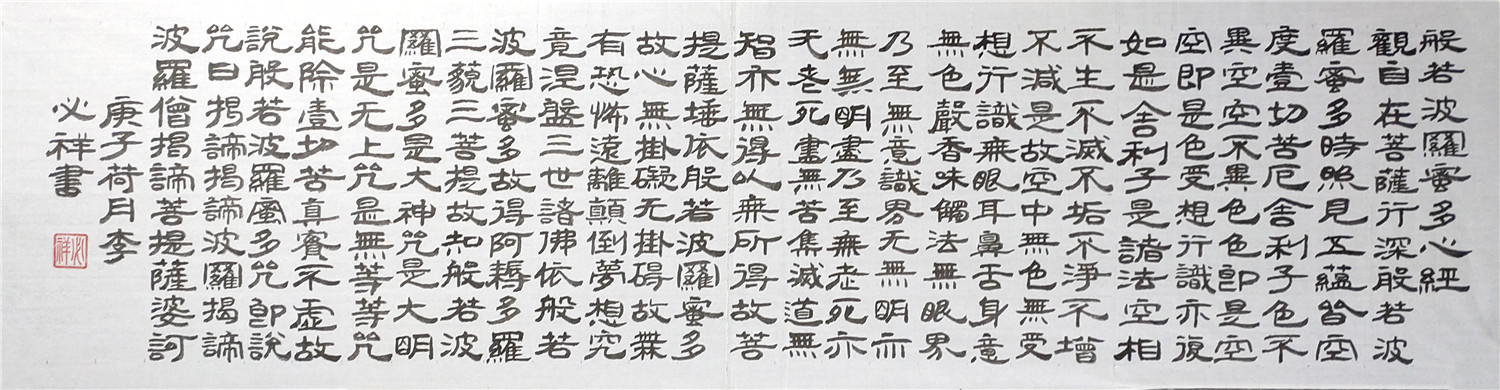 般若波羅蜜多心經
觀自在菩薩行深般若波
羅蜜多時照見五蘊皆空
度壹切苦厄舍利子色不
異空空不異色色即是空
空即是色受想行識亦復
如是舍利子是諸法空相
不生不滅不垢不淨不增
不減是故空中無色無受
想行識無眼耳鼻舌身意
無色聲香味觸法無眼界
乃至無意識界无無明亦
無無明盡乃至無老死亦
无老死盡無苦集滅道無
智亦無得以無所得故菩
提薩埵依般若波羅蜜多
故心無掛礙无掛碍故無
有恐怖遠離顛倒夢想究
竟涅盤三世諸佛依般若
波羅蜜多故得阿耨多羅
三藐三菩提故知般若波
羅蜜多是大神咒是大明
咒是无上咒是無等等咒
能除壹切苦真實不虛故
說般若波羅蜜多咒即說
咒曰揭諦揭諦波羅揭諦
波羅僧揭諦菩提薩婆訶
庚子荷月李
必祥書
必祥